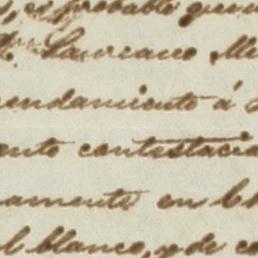 es probable que
Laureano
endamiento á
ento contestacio
amente en
el blanco, y de co